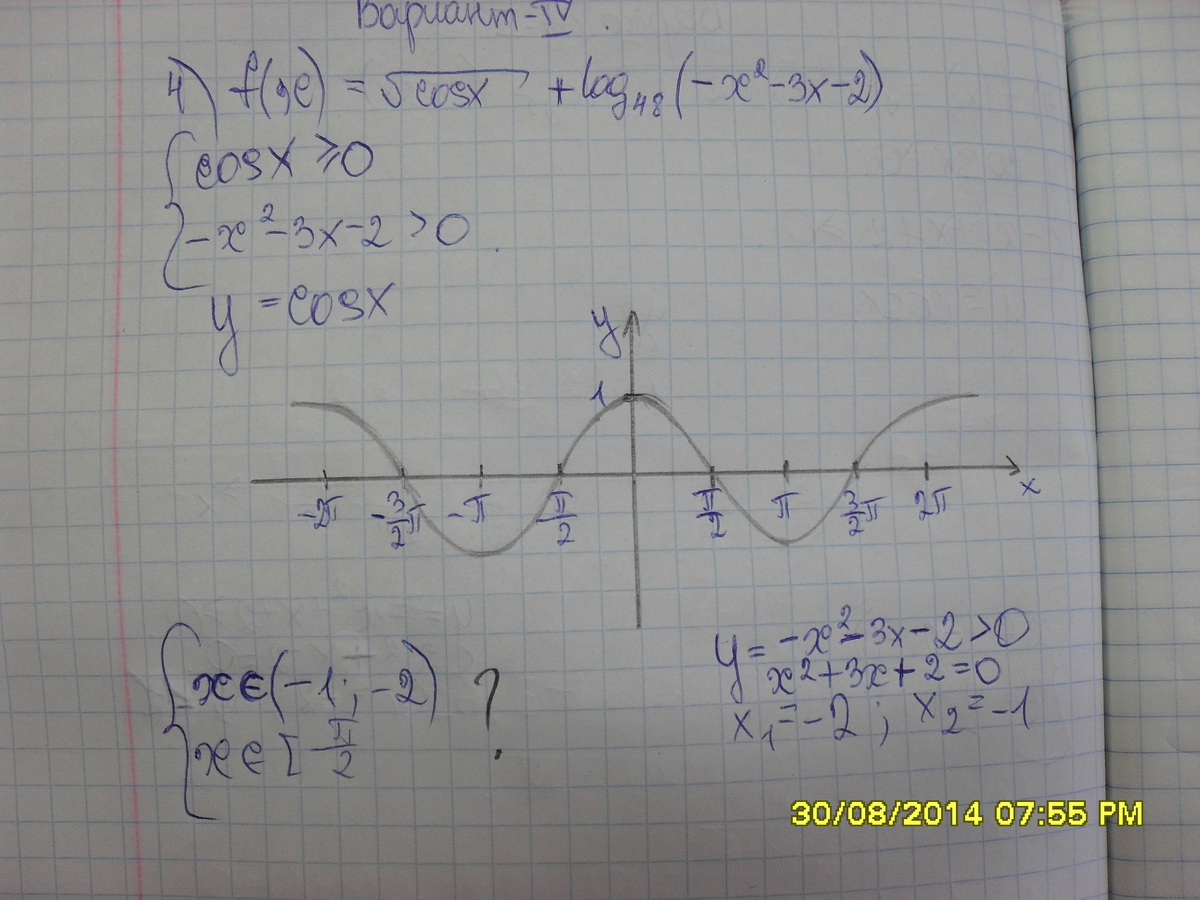 Вариант-IV.
4) f(x) = √cosx + log₄₈(-x²-3x-2)
{ cosx ≥ 0
-x²-3x-2 > 0.
y = cosx
y
1
-2π -3/2π -π -π/2 π/2 π 3/2π 2π x
y = -x²-3x-2 > 0
x²+3x+2=0
x₁=-2; x₂=-1
{ x∈(-1; -2) ?
x∈[-π/2
30/08/2014 07:55 PM